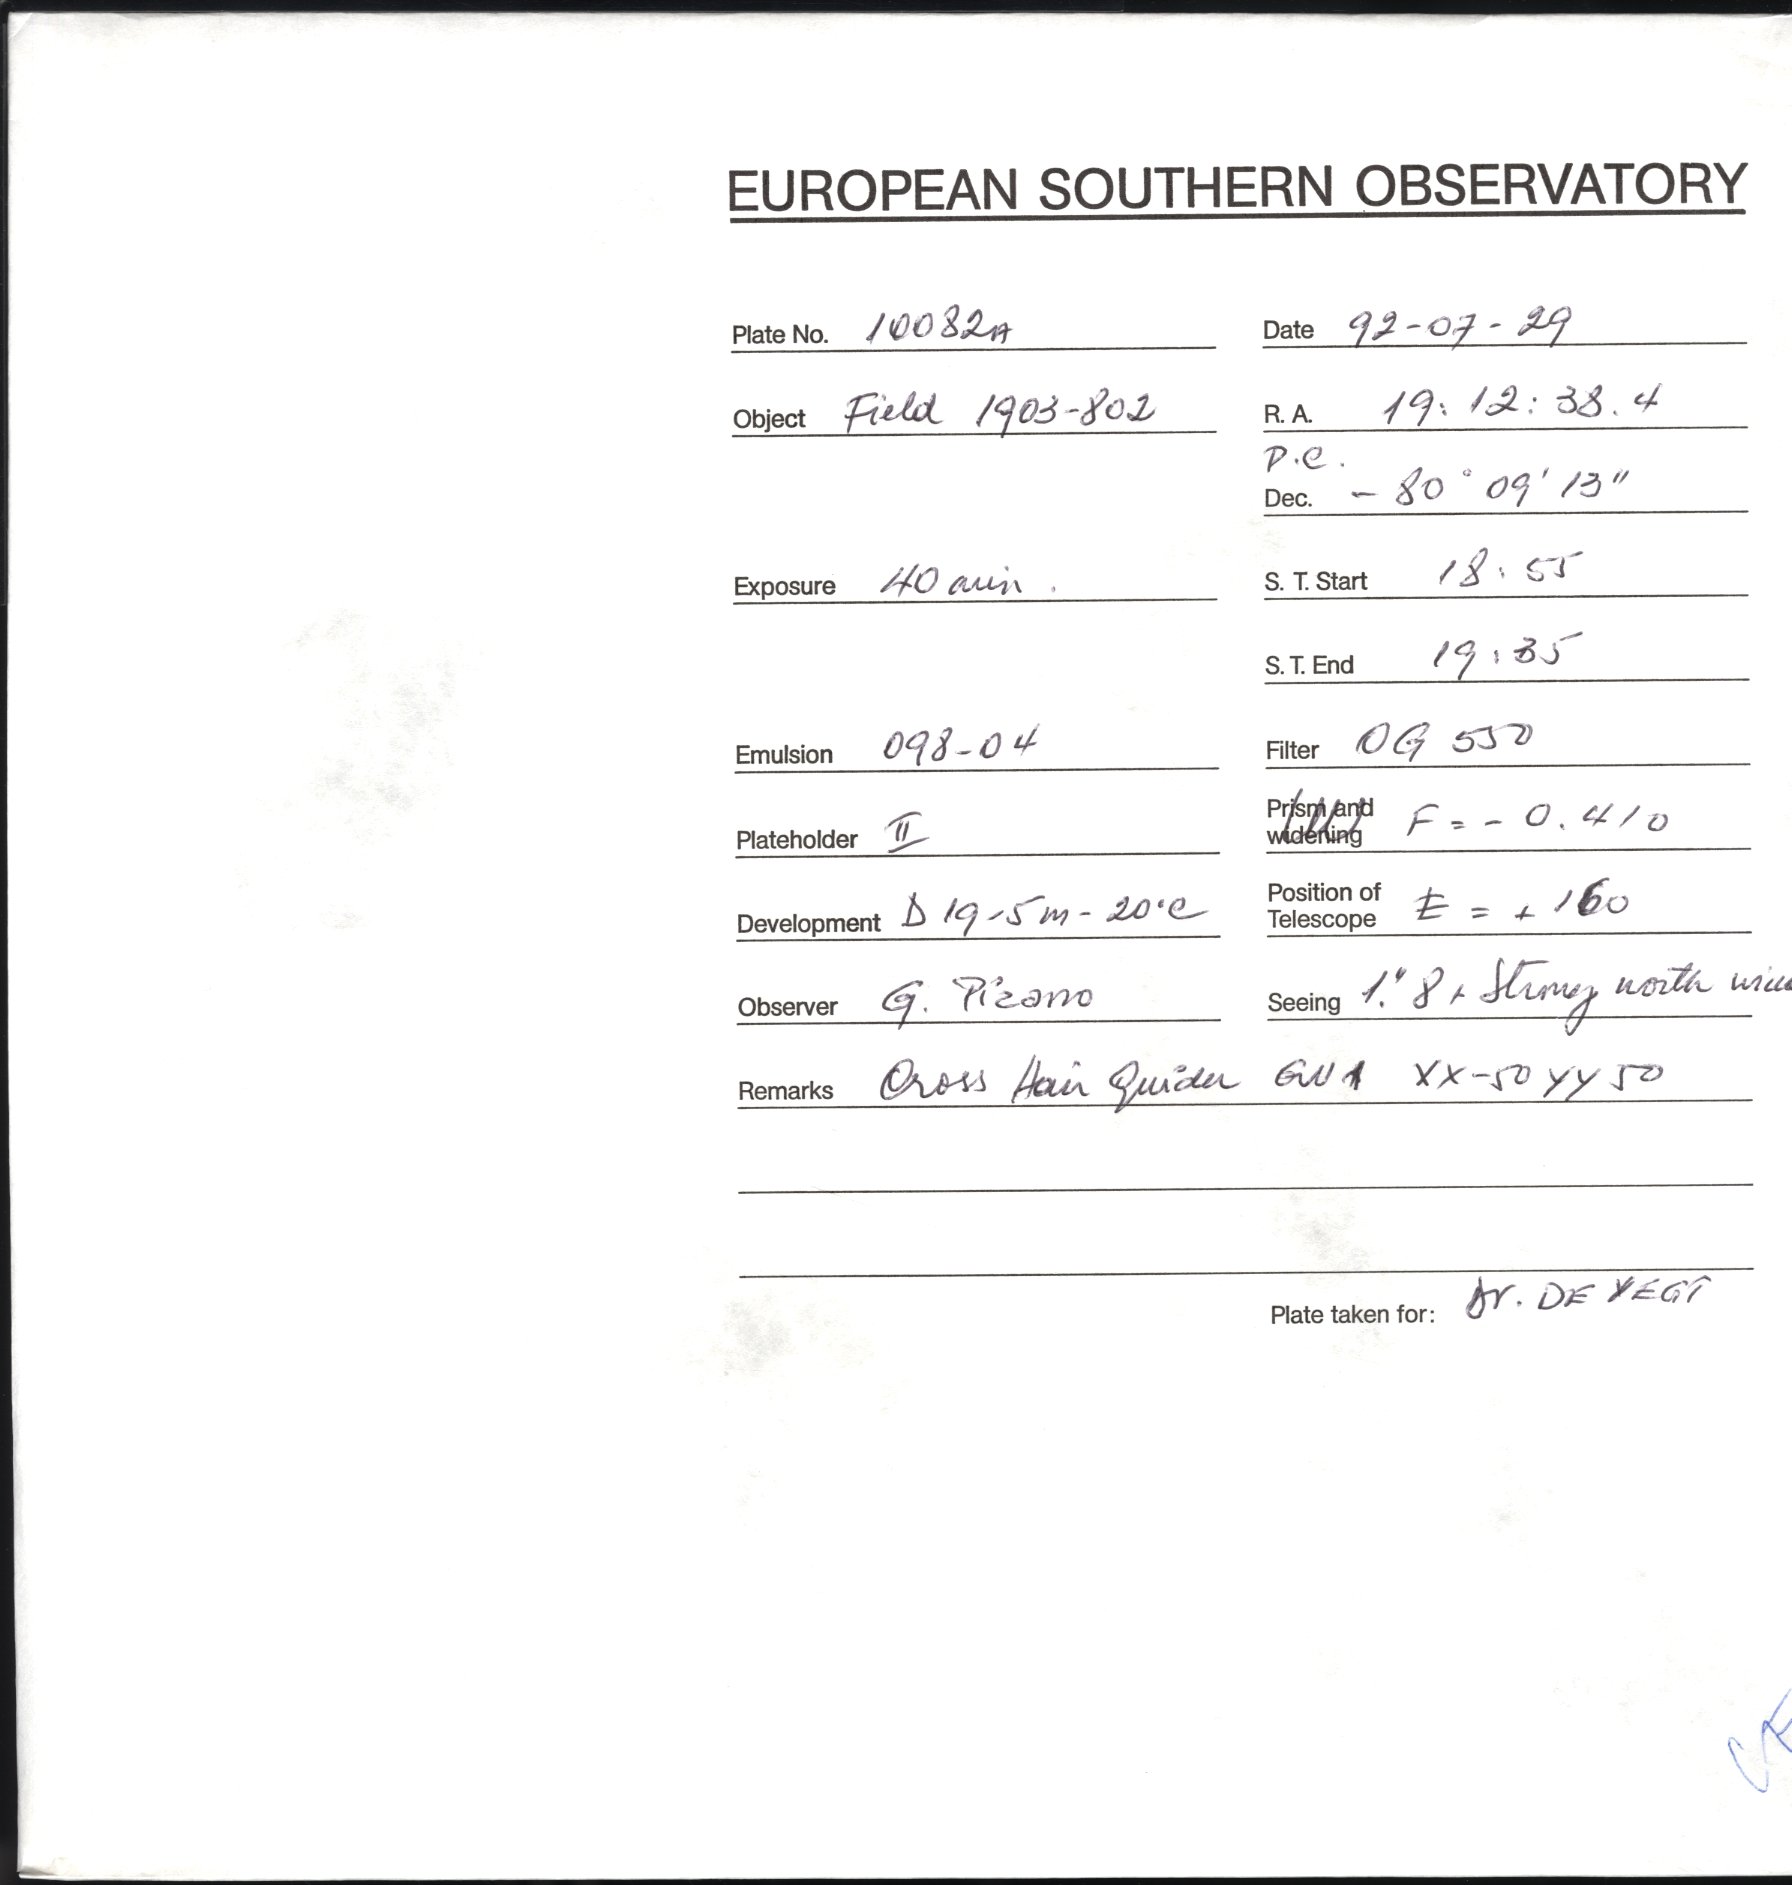 EUROPEAN SOUTHERN OBSERVATORY
Plate No. 10082A Date 92-07-29
Object Field 1903-802 R. A. 19: 12: 38.4
P.C.
Dec. - 80° 09' 13"
Exposure 40 min. S. T. Start 18:55
S. T. End 19:35
Emulsion 098-04 Filter OG 550
Plateholder II Prism and widening F = - 0.410
Development D 19-5m-20°C Position of Telescope E = + 160
Observer G. Pizarro Seeing 1."8, Strong north
Remarks Cross Hair Guider XX-50 YY 50
Plate taken for: Dr. DE VEGT